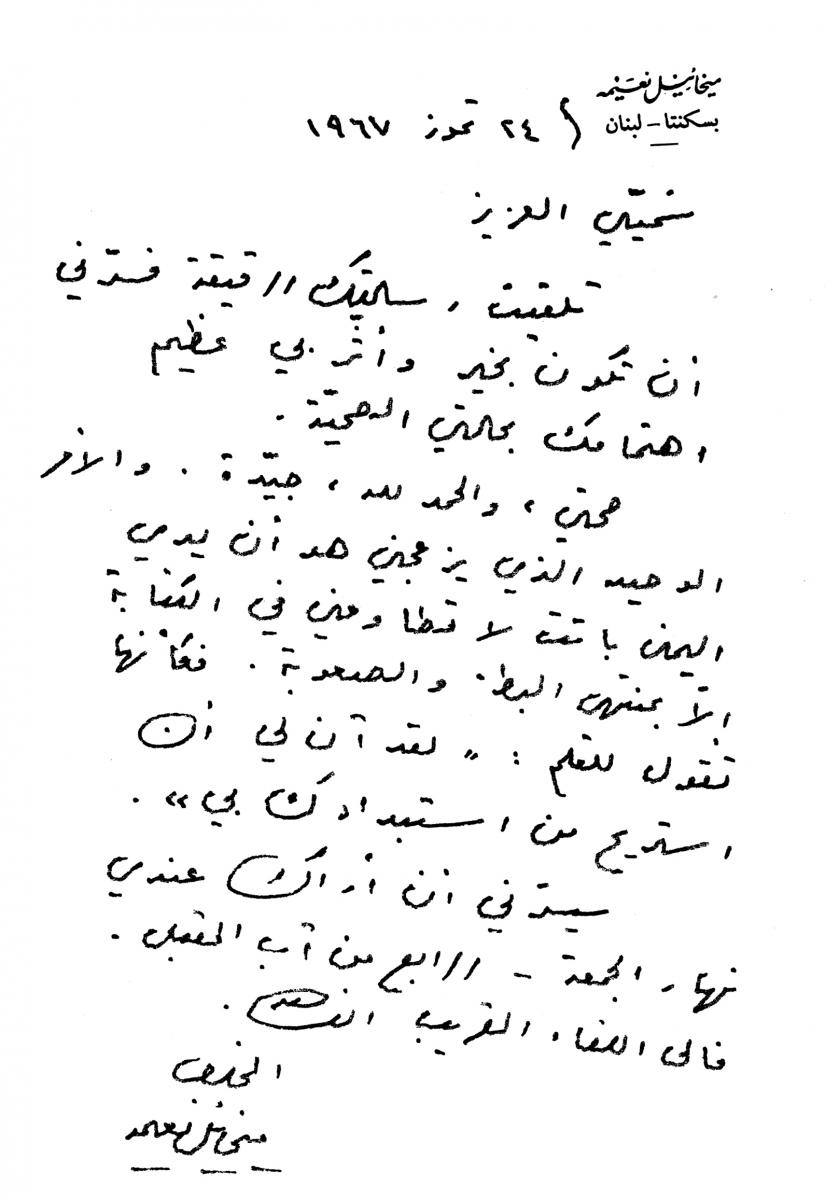 ميخائيل نعيمه
بسكنتا - لبنان
٢٤ تموز ١٩٦٧
سَميّي العزيز
تلقيت رسالتك الرقيقة فسرّني
أن تكون بخير وأثّر بي عظيم
اهتمامك بحالتي الصحيّة.
صحتي، والحمد لله، جيّدة. والأمر
الوحيد الذي يزعجني هو أن يدي
اليمنى باتت لا تطاوعني في الكتابة
الاّ بمنتهى البطء والصعوبة. فكأنها
تقول للقلم: «لقد آن لي أن
استريح من استبدادك بي».
سيسرّني أن أراك عندي
نهار الجمعة - الرابع من آب المقبل.
فالى اللقاء القريب انشالله.
المخلص
ميخائيل نعيمه